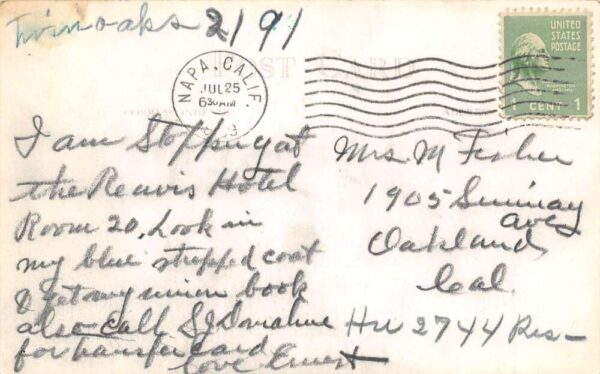 Twinoaks 2191
POST CARD
NAPA, CALIF.
JUL 25
6 30 AM
UNITED
STATES
POSTAGE
WASHINGTON
1 CENT 1
I am Stopping at
the Reavis Hotel
Room 20. Look in
my blue stripped coat
& get my union book
also call S J Donahue Hu 2744 Res-
for transfer card
love Ernest
Mrs. M Fisher
1905 Seminary
Ave
Oakland,
Cal